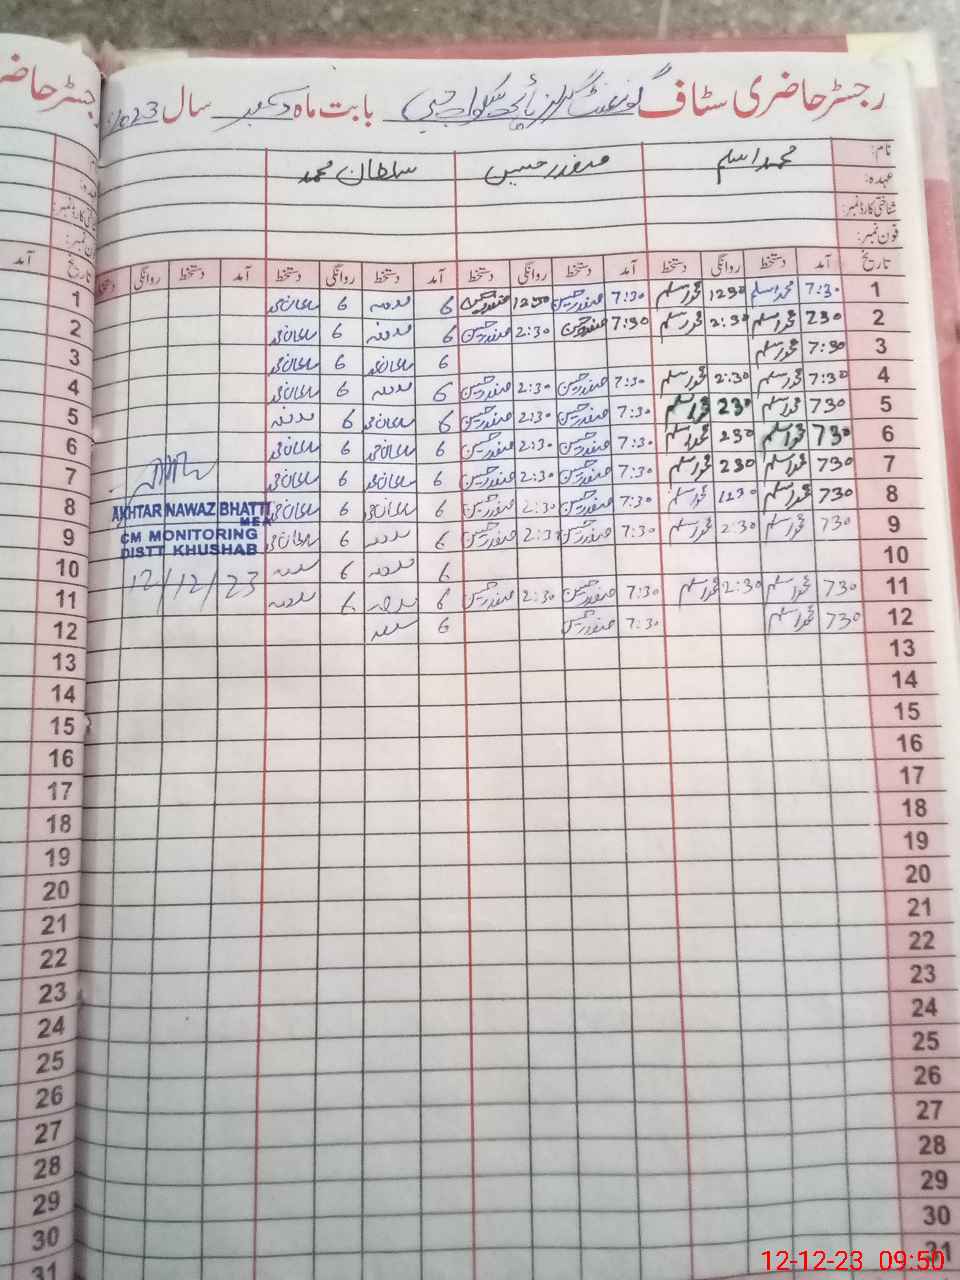 رجسٹر حاضری سٹاف گورنمنٹ گرلز ہائی سکول بابت ماہ دسمبر سال 2023
نام: محمد اسلم صفدر حسین سلطان محمد
عہدہ:
شناختی کارڈ نمبر:
فون نمبر:
تاریخ آمد دستخط روانگی دستخط آمد دستخط روانگی دستخط آمد دستخط روانگی دستخط آمد دستخط روانگی دستخط
1 7:30 محمد اسلم 1230 محمد اسلم 7:30 صفدر حسین 1230 صفدر حسین 6 6 سلطان محمد
2 230 محمد اسلم 2:30 محمد اسلم 7:30 صفدر حسین 2:30 صفدر حسین 6 6 سلطان محمد
3 7:30 محمد اسلم 6 سلطان محمد 6 سلطان محمد
4 7:30 محمد اسلم 2:30 محمد اسلم 7:30 صفدر حسین 2:30 صفدر حسین 6 6 سلطان محمد
5 730 محمد اسلم 230 محمد اسلم 7:30 صفدر حسین 2:30 صفدر حسین 6 سلطان محمد 6
6 730 محمد اسلم 230 محمد اسلم 7:30 صفدر حسین 2:30 صفدر حسین 6 سلطان محمد 6 سلطان محمد
7 730 محمد اسلم 230 محمد اسلم 7:30 صفدر حسین 2:30 صفدر حسین 6 سلطان محمد 6 سلطان محمد
8 730 محمد اسلم 1230 محمد اسلم 7:30 صفدر حسین 2:30 صفدر حسین 6 سلطان محمد 6 سلطان محمد
9 730 محمد اسلم 2:30 محمد اسلم 7:30 صفدر حسین 2:30 صفدر حسین 6 6 سلطان محمد
10 6 6
11 730 محمد اسلم 2:30 محمد اسلم 7:30 صفدر حسین 2:30 صفدر حسین 6 6
12 730 محمد اسلم 7:30 صفدر حسین 6
13
14
15
16
17
18
19
20
21
22
23
24
25
26
27
28
29
30
31
AKHTAR NAWAZ BHATTI
MEA
CM MONITORING
DISTT KHUSHAB
12/12/23
رجسٹر حاضری
آمد
12-12-23 09:50